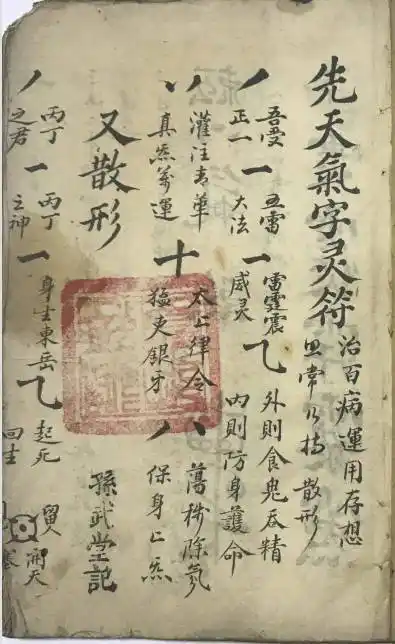 先天氣字灵符
治百病運用存想
常 持 散形
丿
吾受
正一
一
五雷
大法
一
雷霆震
威灵
乙
外則食鬼吞精
內則防身護命
丷
灌注青華
真炁萬運
十
太上律令
猛吏銀牙
八
蕩穢除氛
保身上炁
又散形
孫武堂記
丿
丙丁
之君
一
丙丁
之神
一
身生東岳
乙
起死
回生
開天